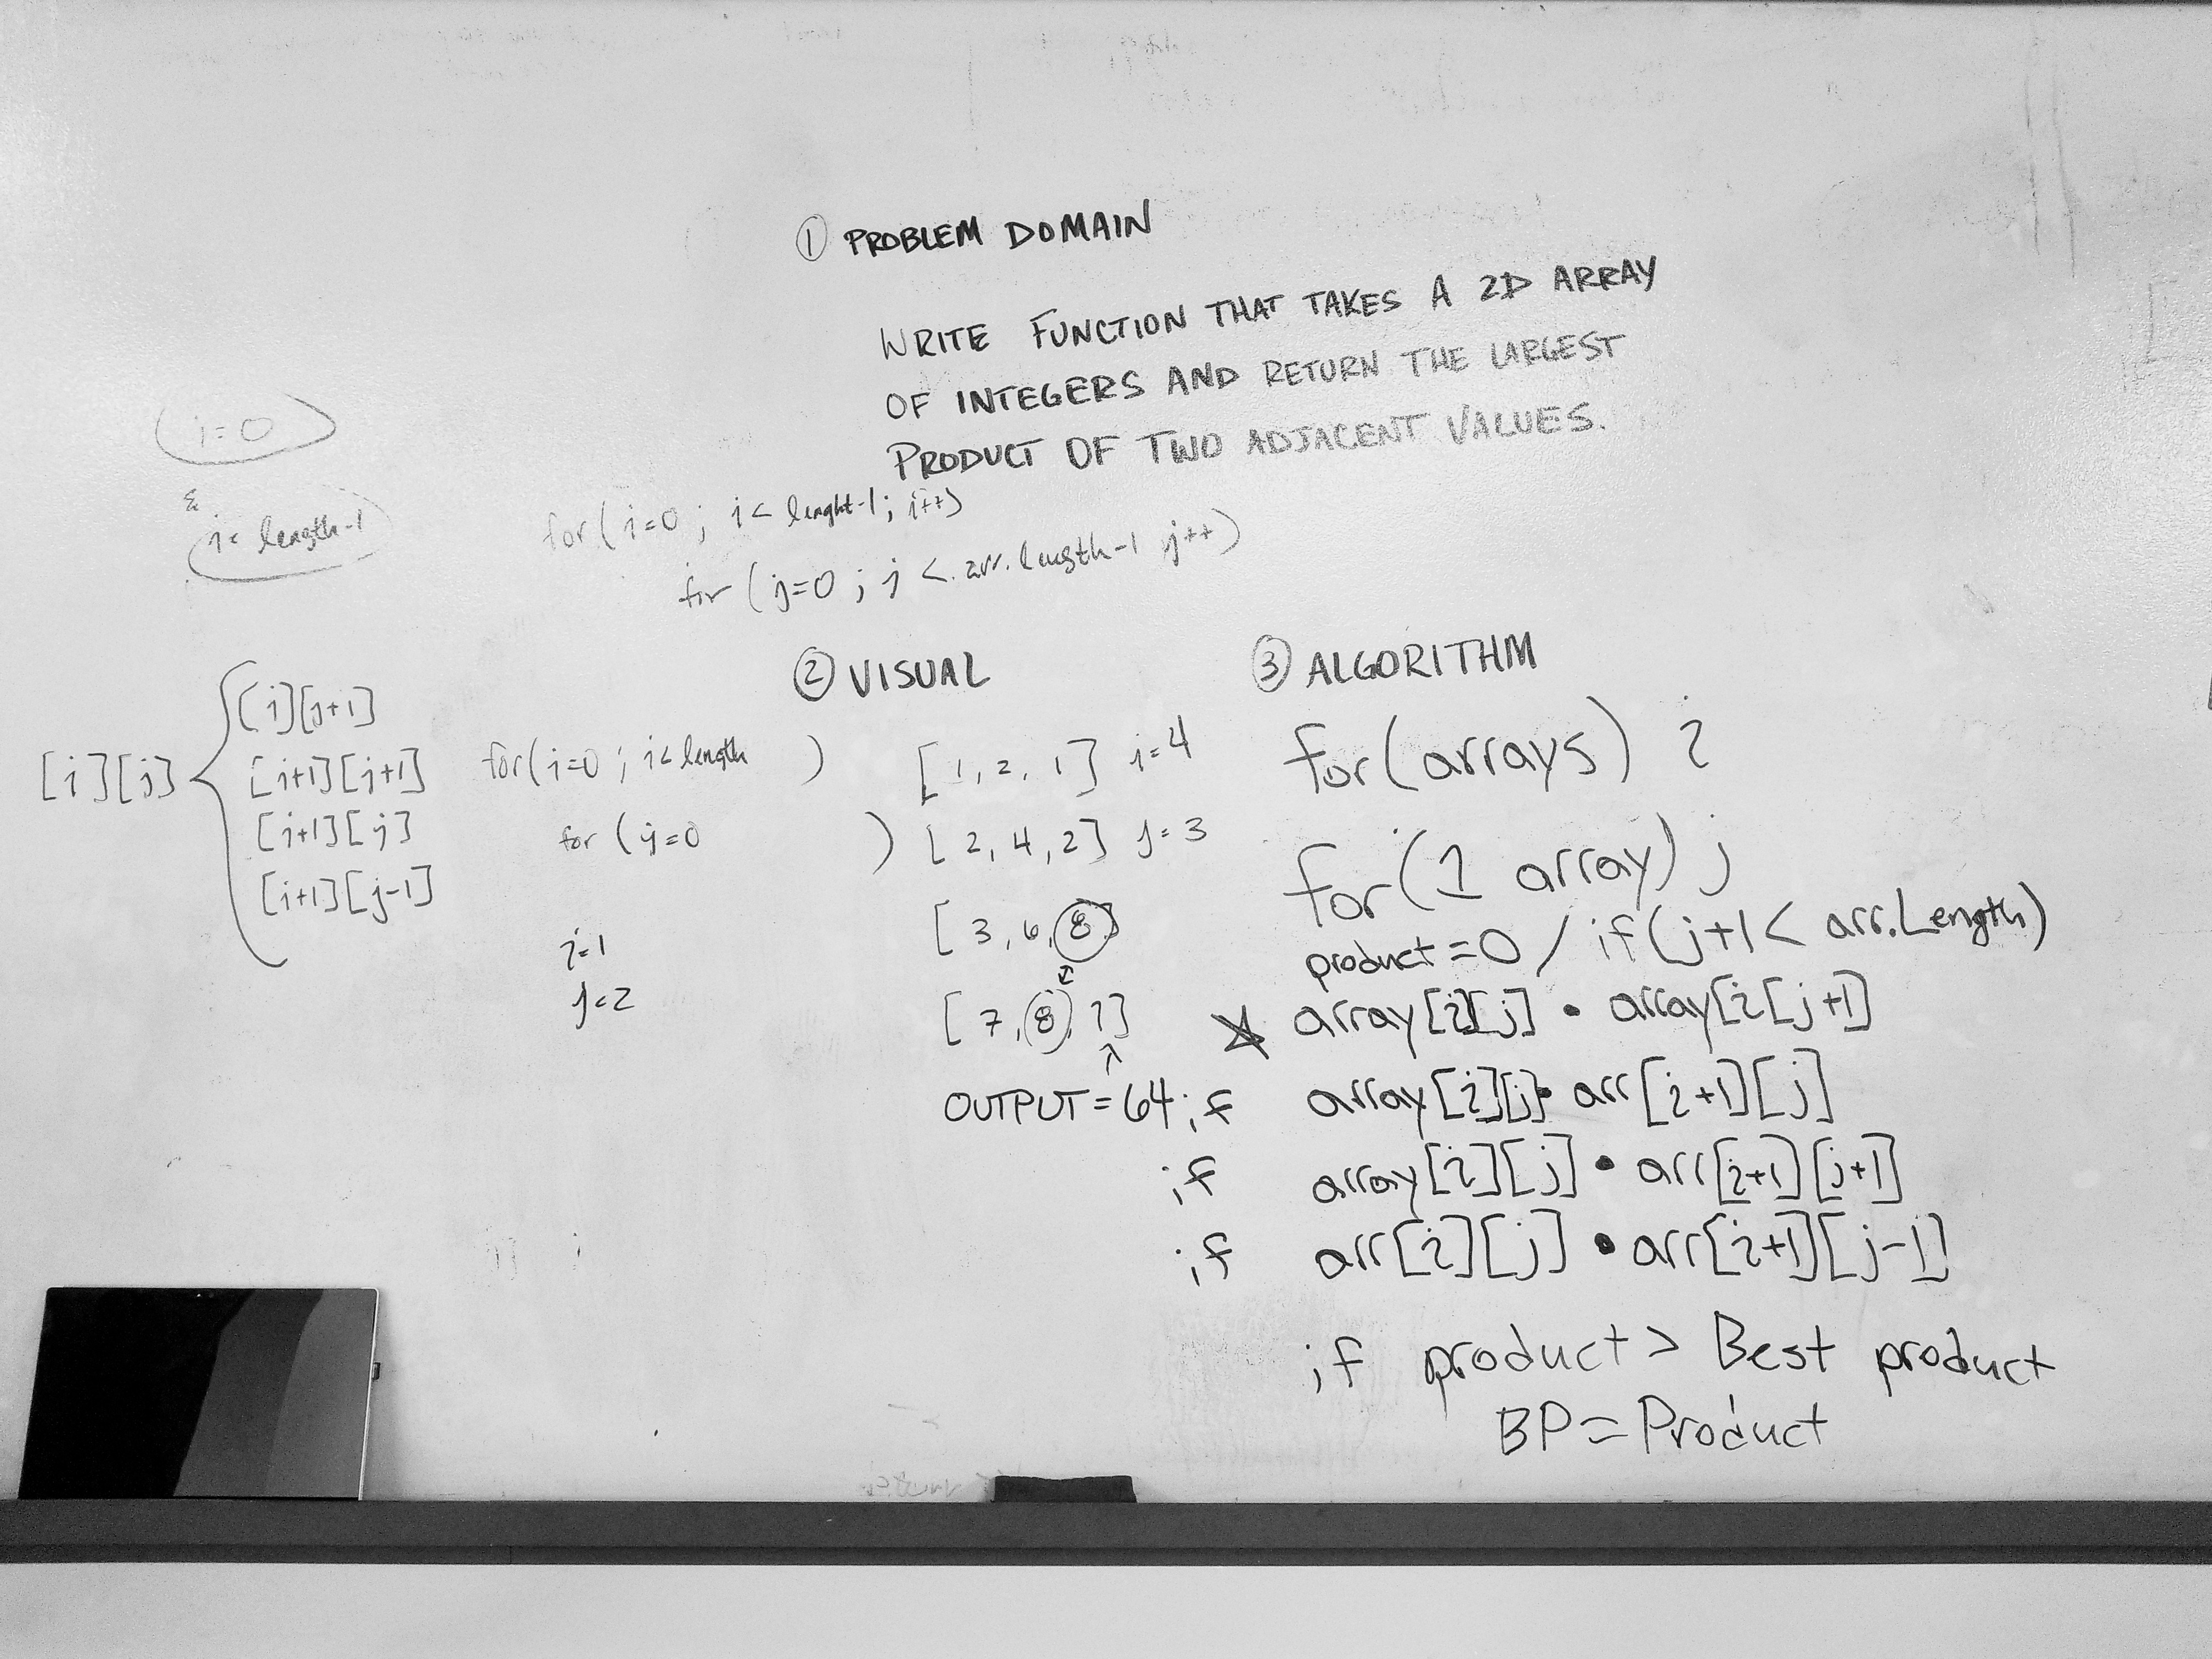 ① PROBLEM DOMAIN
WRITE FUNCTION THAT TAKES A 2D ARRAY
OF INTEGERS AND RETURN THE LARGEST
PRODUCT OF TWO ADJACENT VALUES.
(i=0)
&
i< length-1
for(i=0; i< lenght-1; i++)
for (j=0; j < arr.length-1 j++)
[i][j]
[i][j+1]
[i+1][j+1]
[i+1][j]
[i+1][j-1]
for(i=0; i< length )
for (j=0 )
i=1
j=2
② VISUAL
[1, 2, 1] i=4
[2, 4, 2] j=3
[3, 6, 8]
[7, 8, 1]
OUTPUT=64
③ ALGORITHM
for(arrays) i
for(1 array) j
product=0 / if(j+1< arr.Length)
array[i][j] • array[i[j+1]
if array[i][j]• arr[i+1][j]
if array[i][j] • arr[i+1][j+1]
if arr[i][j] • arr[i+1][j-1]
if product> Best product
BP=Product